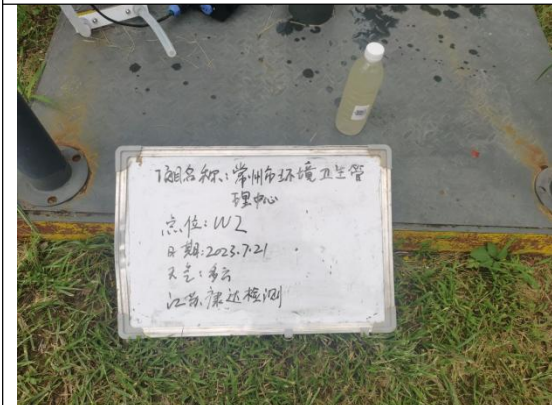 项目名称:常州市环境卫生管
理中心
点位:W2
日期:2023.7.21
天气:多云
江苏康达检测